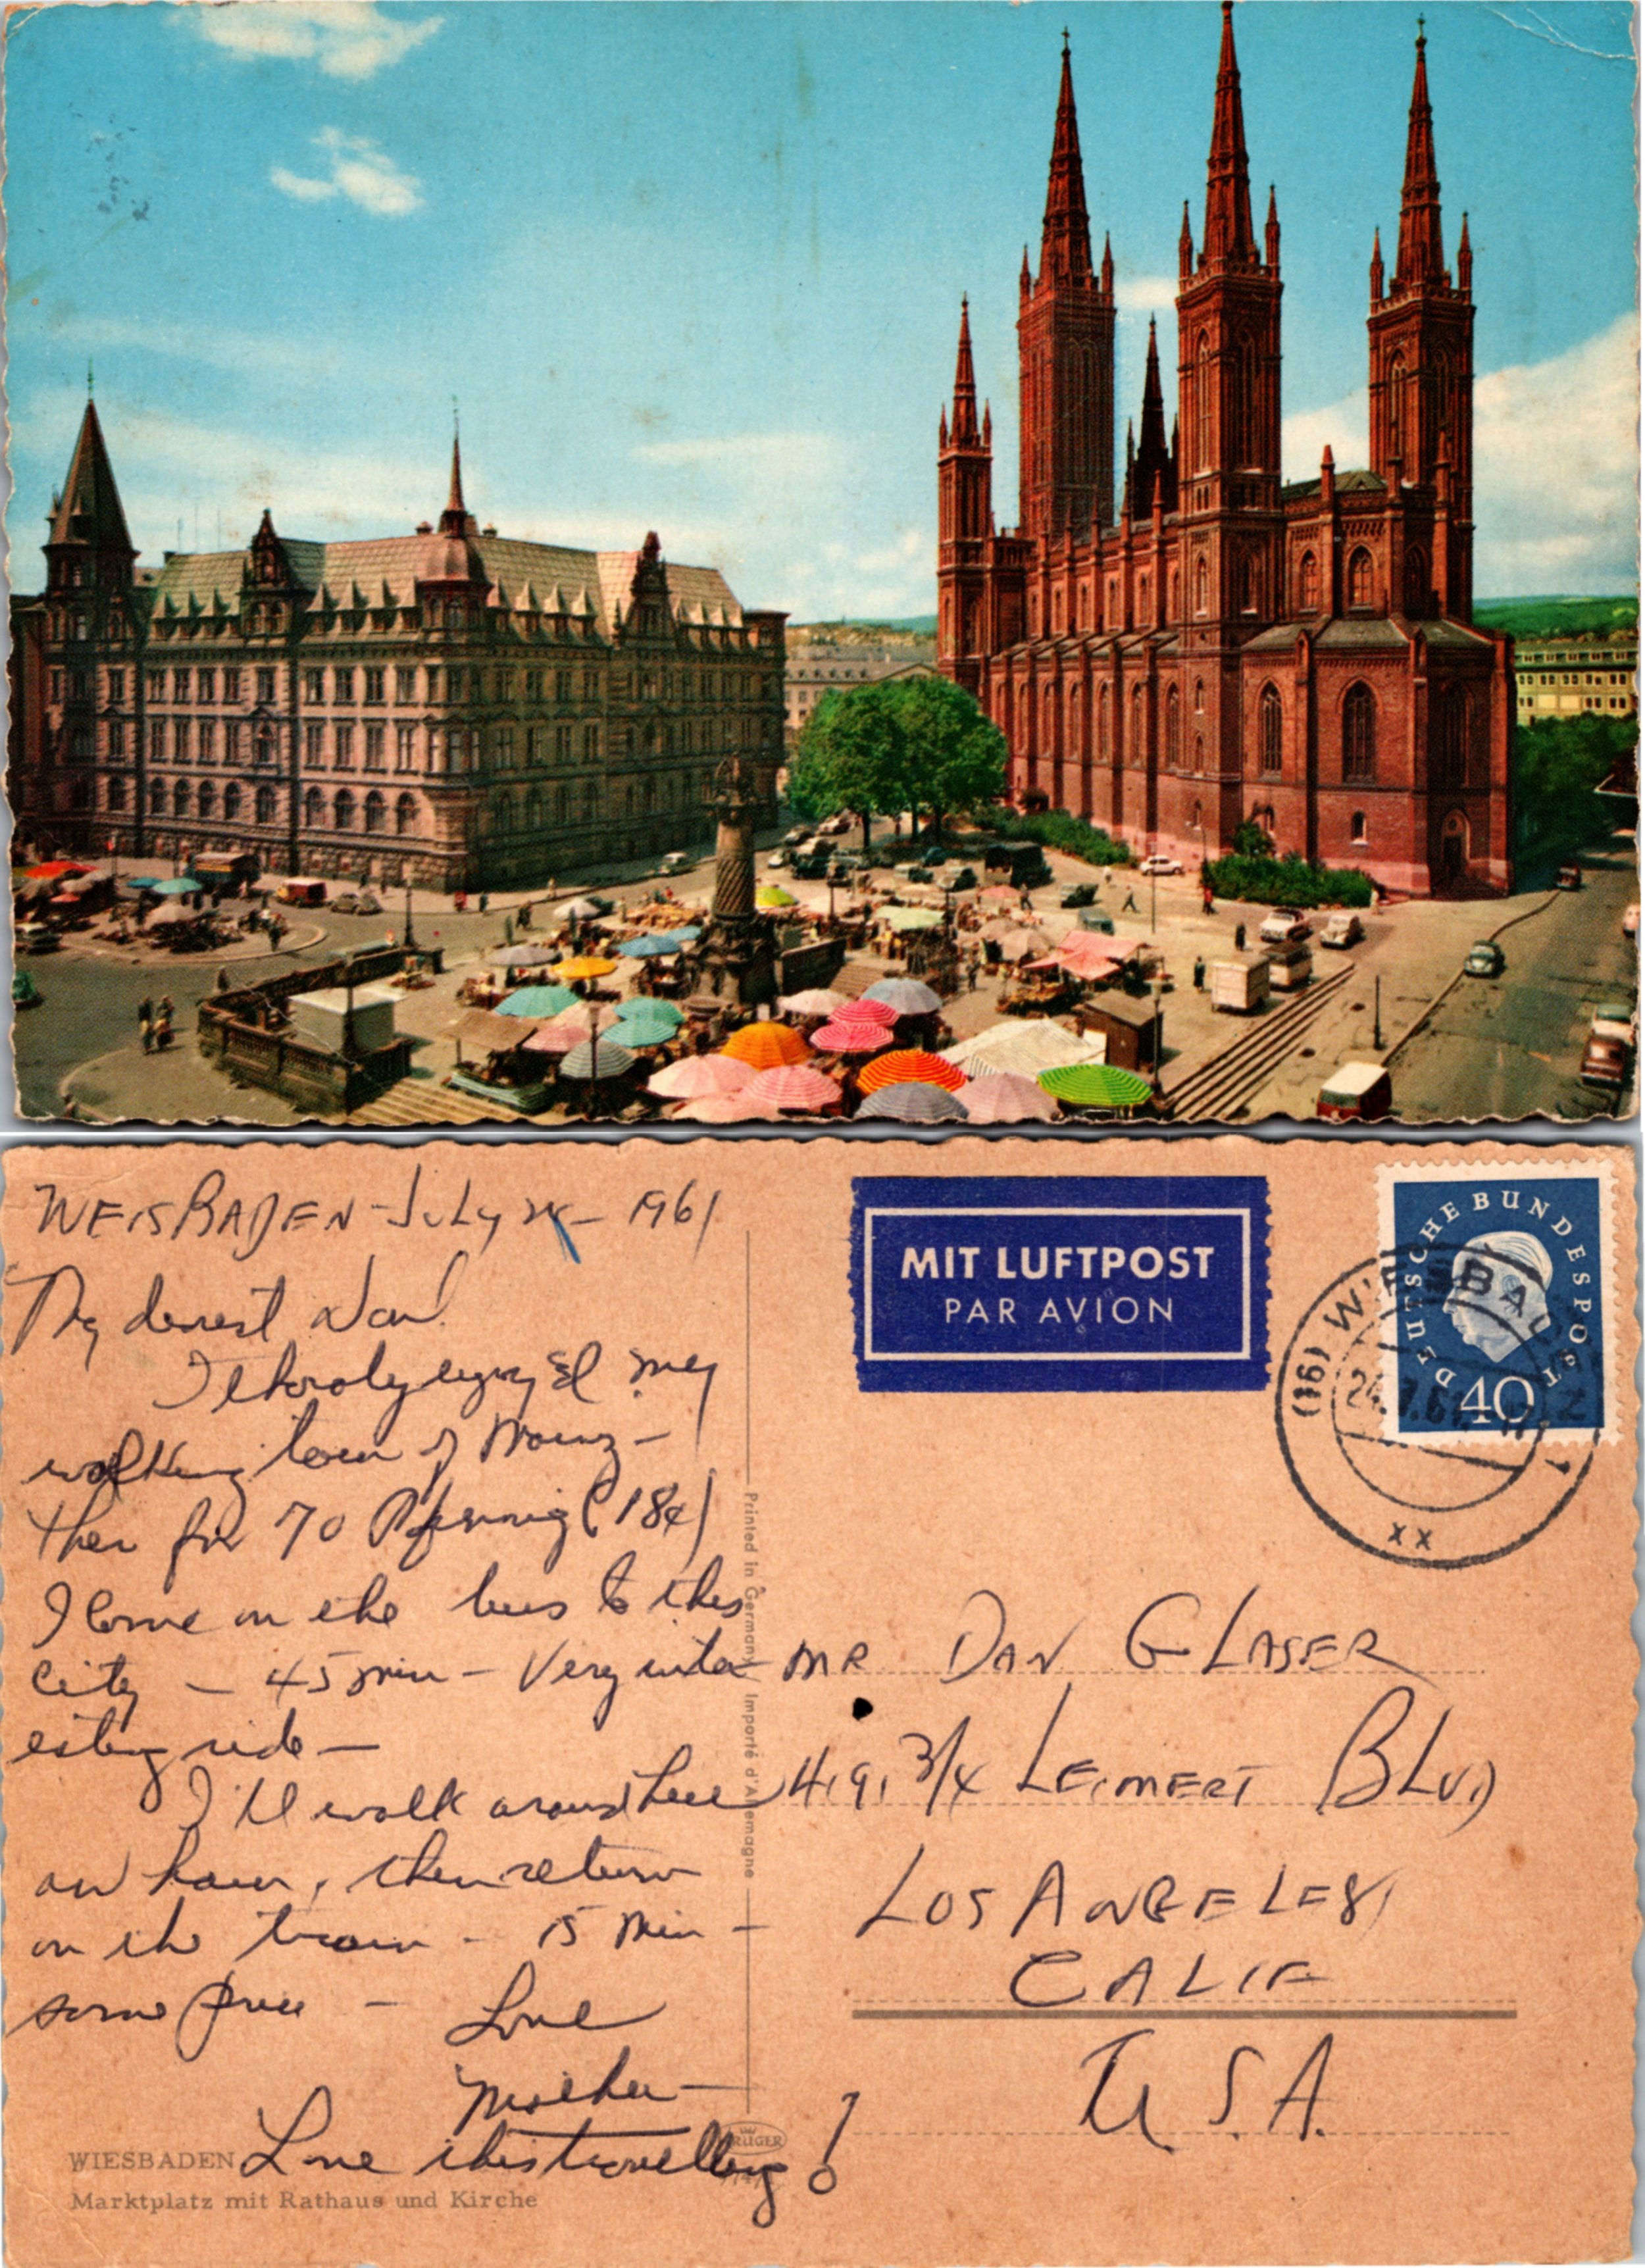 WEISBADEN - JULY 24 - 1961
My dearest Dan!
I thoroly enjoyed my
walking tour of Mainz -
then for 70 Pfennig (18¢)
I come on the bus to this
city - 45 min - Very inter-
esting ride -
I'll walk around here
an hour, then return
on the train - 15 min -
same price - Love
Mother -
Love this travelling!
WIESBADEN
Marktplatz mit Rathaus und Kirche
Printed in Germany / Importé d'Allemagne
KRÜGER
MIT LUFTPOST
PAR AVION
DEUTSCHE BUNDESPOST
40
(16) WIESBADEN
24.7.61
xx
MR DAN GLASER
4191 3/4 LEIMERT BLVD
LOS ANGELES,
CALIF
U.S.A.